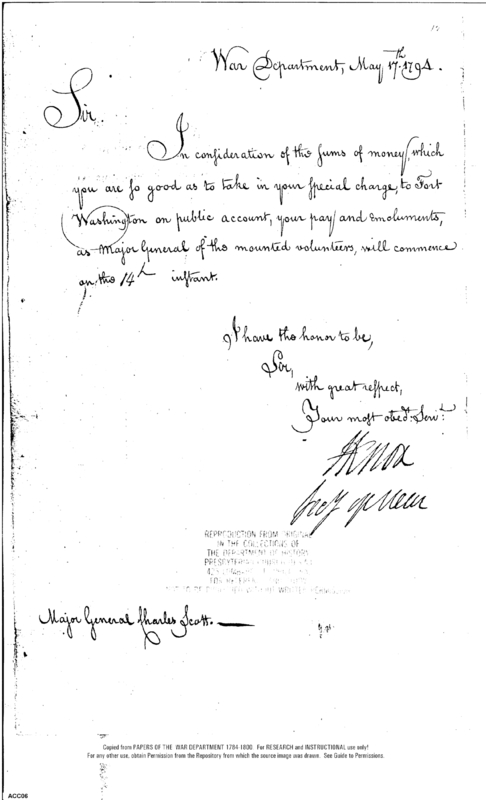 15
War Department, May 17.th 1794.
Sir.
In consideration of the sums of money, which
you are so good as to take in your special charge, to Fort
Washington on public account, your pay and emoluments,
as Major General of the mounted volunteers, will commence
on the 14th instant.
I have the honor to be,
Sir,
with great respect,
Your most obed.t Serv.t
HKnox
Secy of War
REPRODUCTION FROM ORIGINAL
IN THE COLLECTIONS OF
THE DEPARTMENT OF HISTORY
Major General Charles Scott.
Copied from PAPERS OF THE WAR DEPARTMENT 1784-1800. For RESEARCH and INSTRUCTIONAL use only!
For any other use, obtain Permission from the Repository from which the source image was drawn. See Guide to Permissions.
ACC06